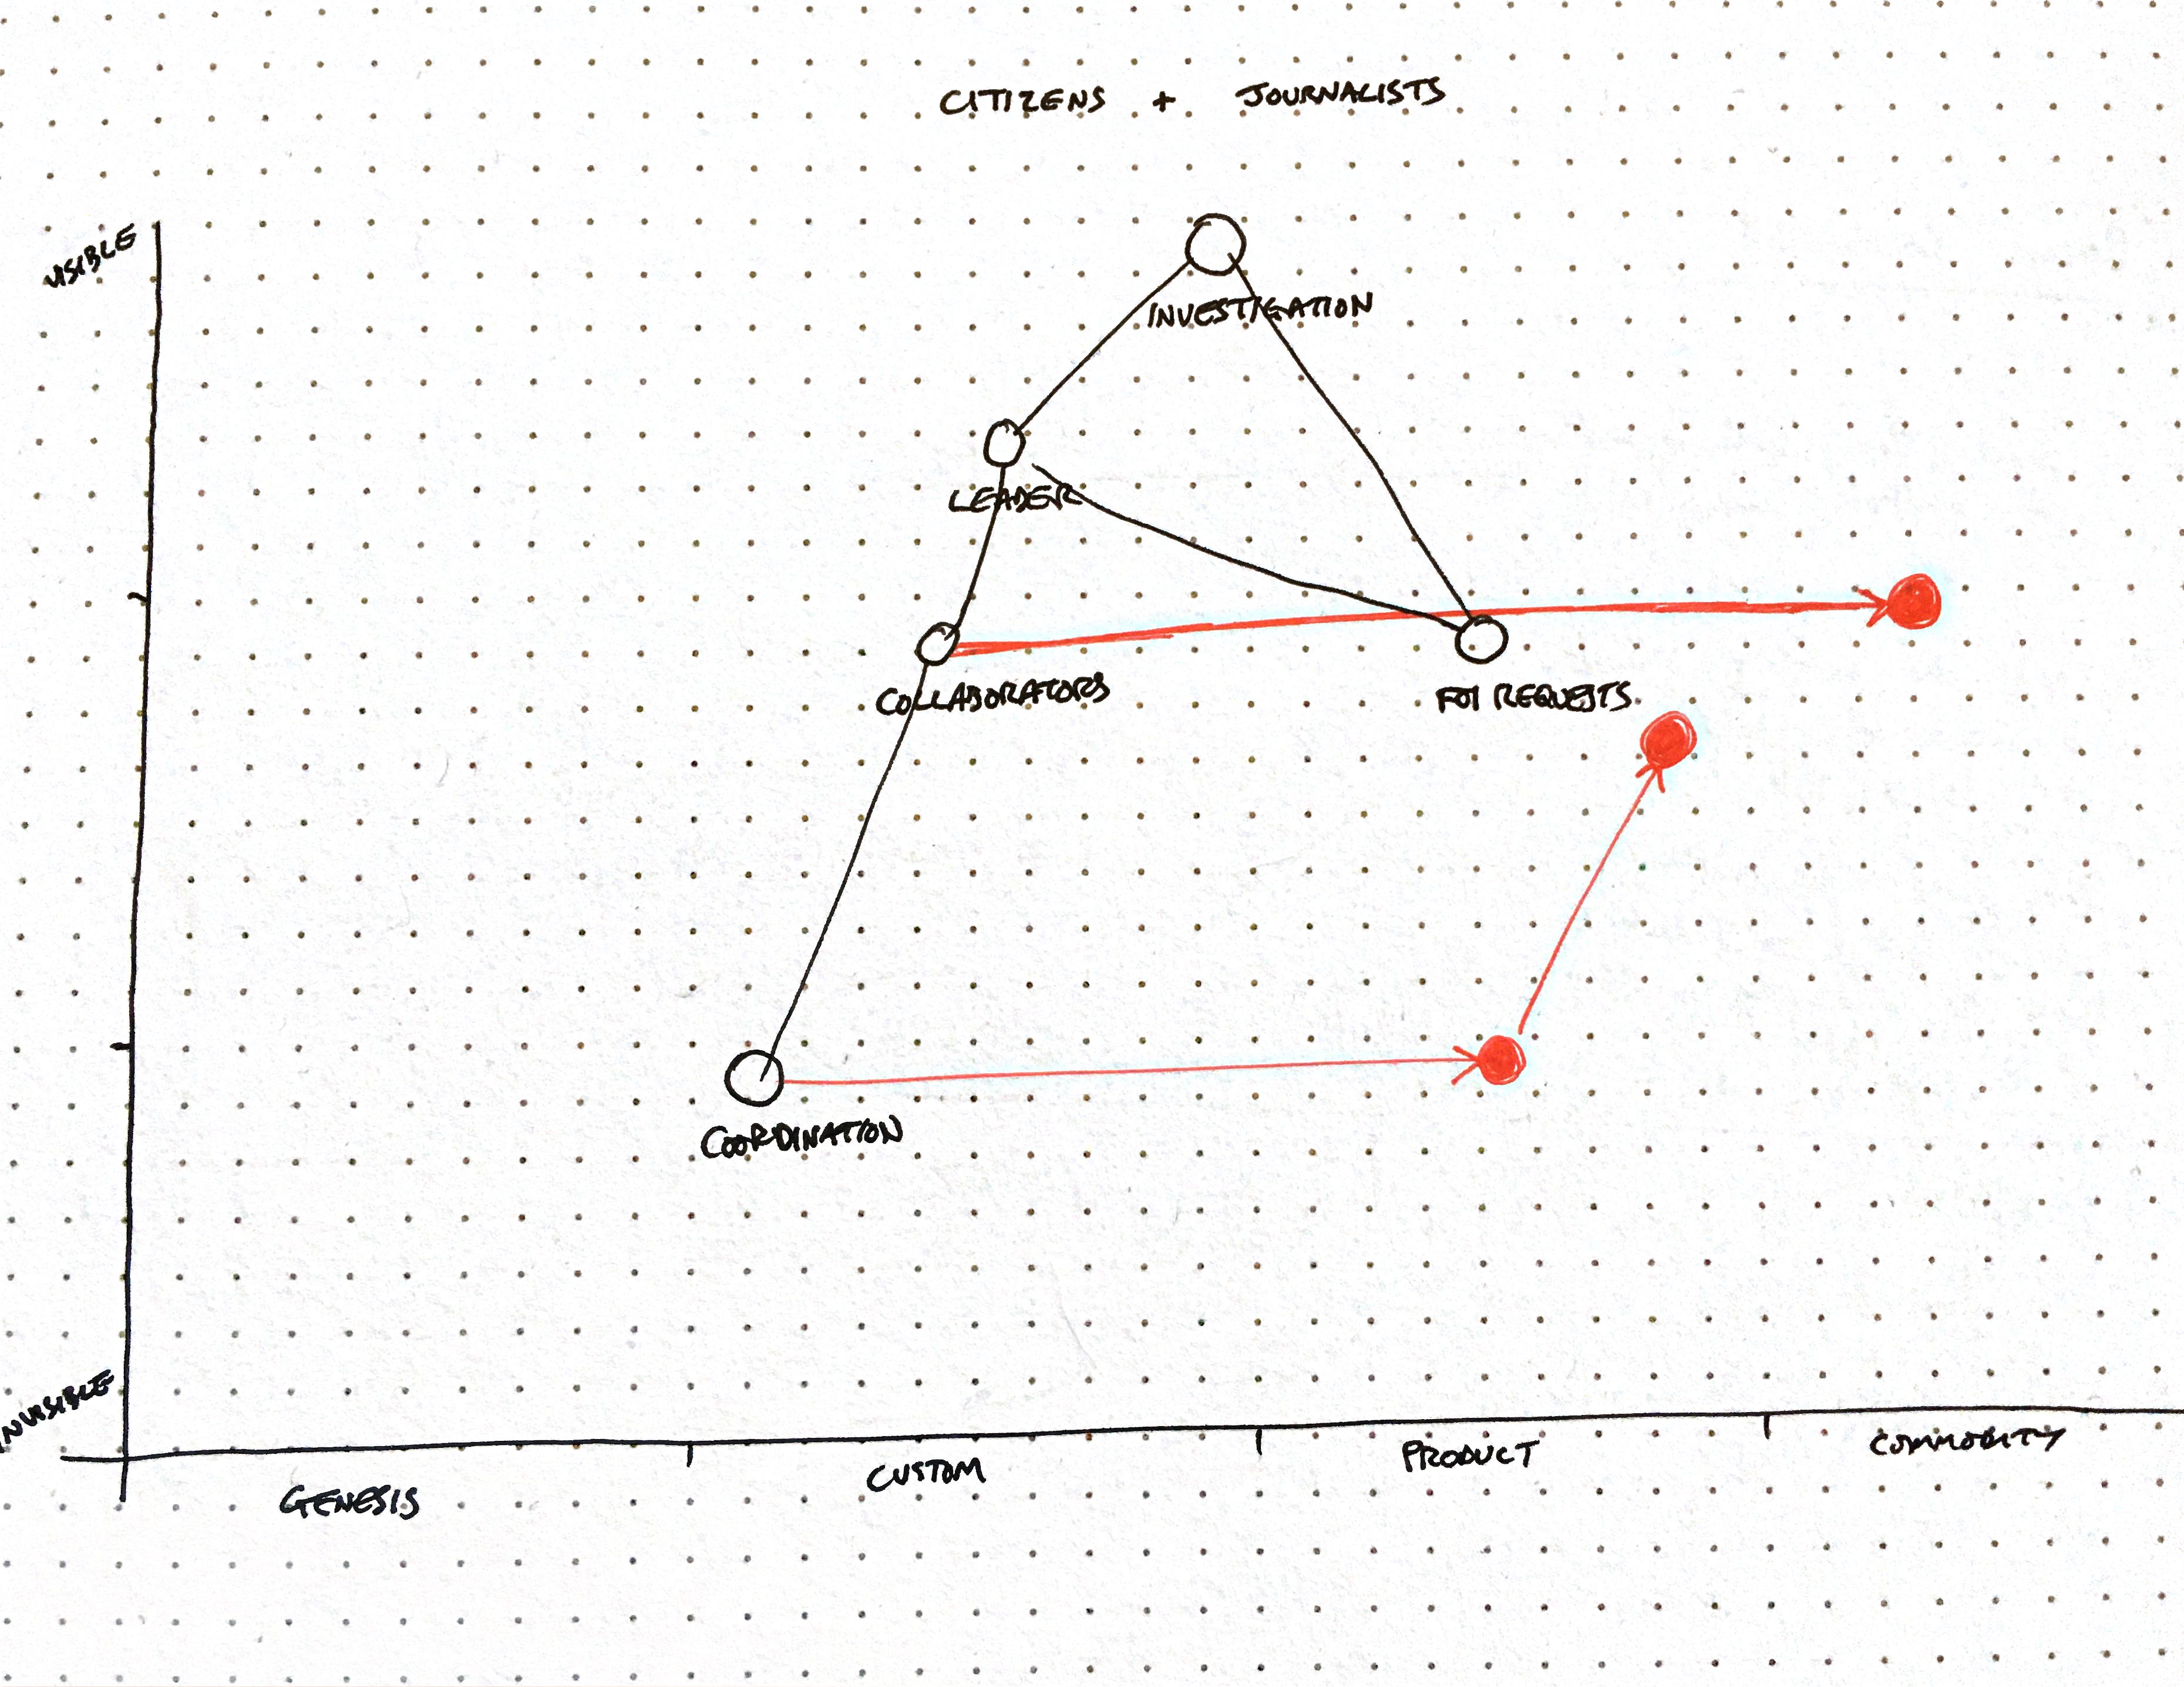 CITIZENS + JOURNALISTS
VISIBLE
INVESTIGATION
LEADER
COLLABORATORS
FOI REQUESTS
COORDINATION
INVISIBLE
GENESIS
CUSTOM
PRODUCT
COMMODITY